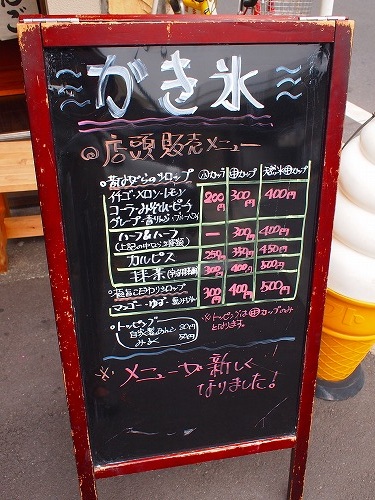 かき氷
◎店頭販売メニュー
昔ながらのシロップ 小カップ 中カップ 天然氷中カップ
イチゴ・メロン・レモン
コーラ・みぞれ・ピーチ 200円 300円 400円
グレープ・青りんご・ブルーハワイ
ハーフ&ハーフ ー 300円 400円
カルピス 250円 350円 450円
抹茶 300円 400円 500円
極旨こだわりシロップ
マンゴー・ゆず 300円 400円 500円
・トッピング
みるく 50円
※トッピングは中カップのみ
となります。
※メニューが新しく
なりました!